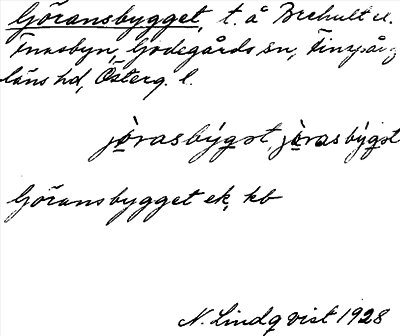 Göransbygget, t. å Brehult el.
Finnbyn, Godegårds sn, Finspånga
läns hd, Österg. l.
jòrasbýgət, jòrasbýgət
Göransbygget ek, kb
N. Lindqvist 1928